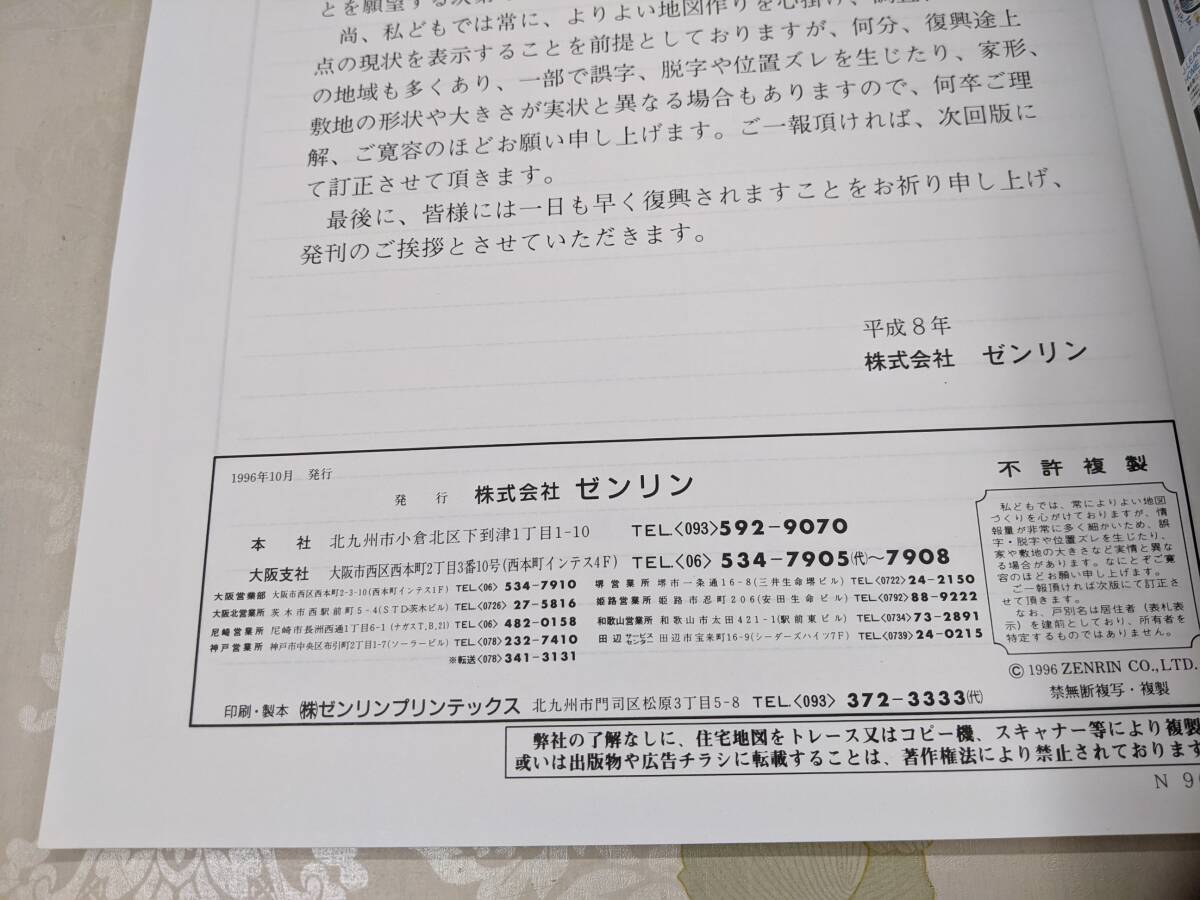 とを願望する次第
尚、私どもでは常に、よりよい地図作りを心掛け、
点の現状を表示することを前提としておりますが、何分、復興途上
の地域も多くあり、一部で誤字、脱字や位置ズレを生じたり、家形、
敷地の形状や大きさが実状と異なる場合もありますので、何卒ご理
解、ご寛容のほどお願い申し上げます。ご一報頂ければ、次回版に
て訂正させて頂きます。
最後に、皆様には一日も早く復興されますことをお祈り申し上げ、
発刊のご挨拶とさせていただきます。
平成8年
株式会社 ゼンリン
1996年10月 発行
発 行 株式会社 ゼンリン
本 社 北九州市小倉北区下到津1丁目1-10 TEL〈093〉592-9070
大阪支社 大阪市西区西本町2丁目3番10号(西本町インテス4F) TEL〈06〉534-7905(代)~7908
大阪営業部 大阪市西区西本町2-3-10(西本町インテス1F) TEL〈06〉534-7910
大阪北営業所 茨木市西駅前町5-4(STD茨木ビル) TEL〈0726〉27-5816
尼崎営業所 尼崎市長洲西通1丁目6-1(ナガスT,B,21) TEL〈06〉482-0158
神戸営業所 神戸市中央区布引町2丁目1-7(ソーラービル) TEL〈078〉232-7410
※転送〈078〉341-3131
堺営業所 堺市一条通16-8(三井生命堺ビル) TEL〈0722〉24-2150
姫路営業所 姫路市忍町206(安田生命ビル) TEL〈0792〉88-9222
和歌山営業所 和歌山市太田421-1(駅前東ビル) TEL〈0734〉73-2891
田辺サービスセンター 田辺市宝来町16-9(シーダーズハイツ7F) TEL〈0739〉24-0215
印刷・製本 ㈱ゼンリンプリンテックス 北九州市門司区松原3丁目5-8 TEL〈093〉372-3333(代)
不許複製
私どもでは、常によりよい地図
づくりを心がけておりますが、情
報量が非常に多く細かいため、誤
字・脱字や位置ズレを生じたり、
家や敷地の大きさなど実情と異な
る場合があります。なにとぞご寛
容のほどお願い申し上げます。
ご一報頂ければ次版にて訂正さ
せて頂きます。
なお、戸別名は居住者(表札表
示)を建前としており、所有者を
特定するものではありません。
© 1996 ZENRIN CO.,LTD.
禁無断複写・複製
弊社の了解なしに、住宅地図をトレース又はコピー機、スキャナー等により複製
或いは出版物や広告チラシに転載することは、著作権法により禁止されております
N 9